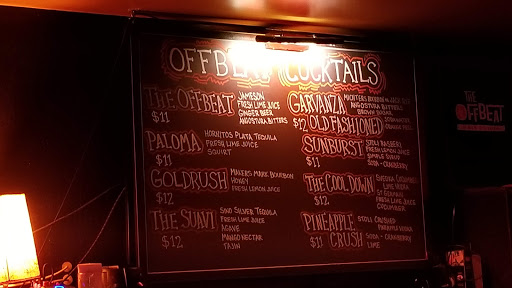 OFFBEAT COCKTAILS
THE OFFBEAT
$11
JAMESON
FRESH LIME JUICE
GINGER BEER
ANGOSTURA BITTERS
PALOMA
$11
HORNITOS PLATA TEQUILA
FRESH LIME JUICE
SQUIRT
GOLDRUSH
$12
MAKERS MARK BOURBON
HONEY
FRESH LEMON JUICE
THE SUAVI
$12
SINO SILVER TEQUILA
FRESH LIME JUICE
AGAVE
MANGO NECTAR
TAJIN
GARVANZA
$12 OLD FASHIONED
MICHTERS BOURBON
ANGOSTURA BITTERS
BROWN SUGAR
SUNBURST
$11
STOLI RASBERI
FRESH LEMON JUICE
SIMPLE SYRUP
SODA - CRANBERRY
THE COOL DOWN
$12
LIME VODKA
ST GERMAIN
FRESH LIME JUICE
CUCUMBER
PINEAPPLE
$11 CRUSH
STOLI CRUSHED
PINEAPPLE VODKA
SODA - CRANBERRY
LIME
THE
OFFBEAT